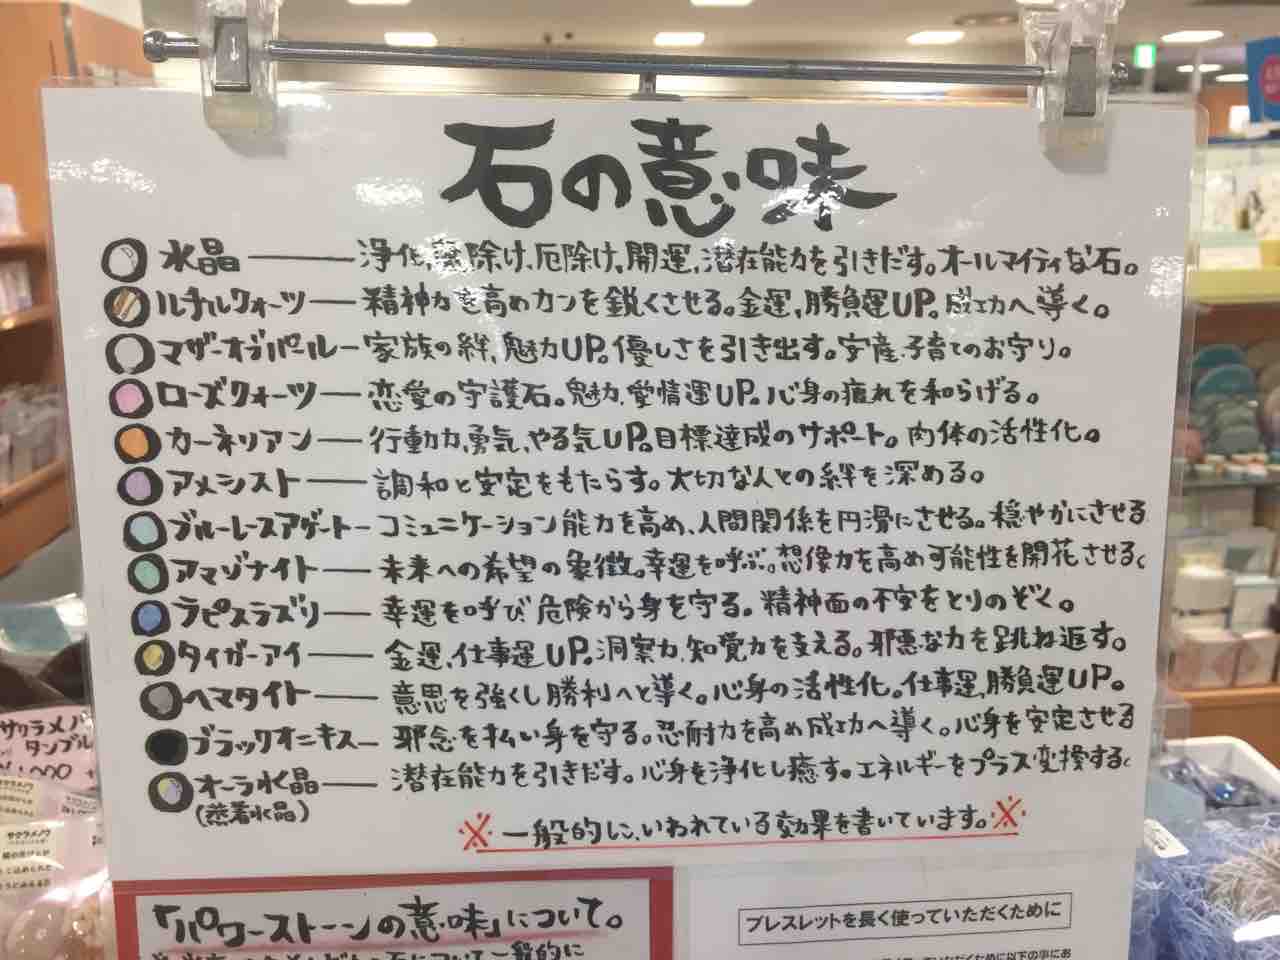 石の意味
水晶 ー 浄化、魔除け、厄除け、開運、潜在能力を引きだす。オールマイティな石。
ルチルクォーツ ー 精神力を高めカンを鋭くさせる。金運、勝負運UP。成功へ導く。
マザーオブパール ー 家族の絆、魅力UP。優しさを引き出す。安産、子育てのお守り。
ローズクォーツ ー 恋愛の守護石。魅力、愛情運UP。心身の疲れを和らげる。
カーネリアン ー 行動力、勇気、やる気UP。目標達成のサポート。肉体の活性化。
アメシスト ー 調和と安定をもたらす。大切な人との絆を深める。
ブルーレースアゲート ー コミュニケーション能力を高め、人間関係を円滑にさせる。穏やかにさせる
アマゾナイト ー 未来への希望の象徴。幸運を呼ぶ。想像力を高め可能性を開花させる。
ラピスラズリ ー 幸運を呼び危険から身を守る。精神面の不安をとりのぞく。
タイガーアイ ー 金運、仕事運UP。洞察力、知覚力を支える。邪悪な力を跳ね返す。
ヘマタイト ー 意思を強くし勝利へと導く。心身の活性化。仕事運、勝負運UP。
ブラックオニキス ー 邪念を払い身を守る。忍耐力を高め成功へ導く。心身を安定させる
オーラ水晶 ー 潜在能力を引きだす。心身を浄化し癒す。エネルギーをプラス変換する。
(蒸着水晶)
※一般的に、いわれている効果を書いています。※
「パワーストーンの意味」について。
ブレスレットを長く使っていただくために
サクラメノウ
タンブル
サクラメノウ